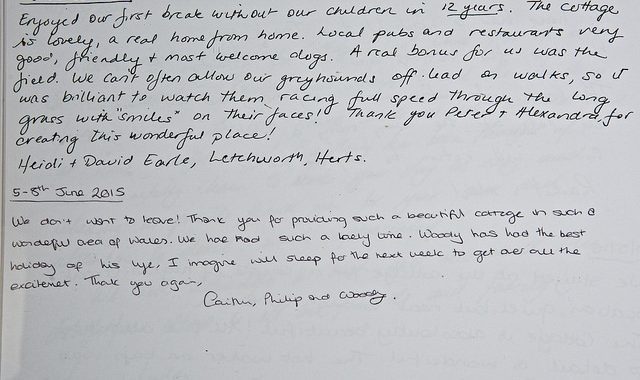 Enjoyed our first break without our children in 12 years. The cottage
is lovely, a real home from home. Local pubs and restaurants very
good, friendly + most welcome dogs. A real bonus for us was the
field. We can't often allow our greyhounds off-lead on walks, so it
was brilliant to watch them racing full speed through the long
grass with "smiles" on their faces! Thank you Peter + Alexandra, for
creating this wonderful place!
Heidi + David Earle, Letchworth, Herts.
5-8th June 2015
We don't want to leave! Thank you for providing such a beautiful cottage in such a
wonderful area of Wales. We have had such a lovely time. Woody has had the best
holiday of his life, I imagine will sleep for the next week to get over all the
excitement. Thank you again,
Caitlin, Philip and Woody.